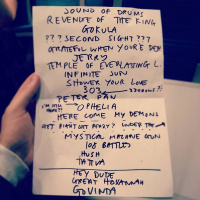 SOUND OF DRUMS
REVENGE OF THE KING
GOKULA
???SECOND SIGHT???
GRATEFUL WHEN YOU'RE DEAD
JERRY
TEMPLE OF EVERLASTING L.
INFINITE SUN
SHOWER YOUR LOVE
303
PETER PAN
OPHELIA
HERE COME MY DEMONS
HEY BIGHT GET READY? UNDER THE
MYSTICAL MACHINE GUN
108 BATTLES
HUSH
TATTVA
HEY DUDE
GREAT HOSANNAH
GOVINDA